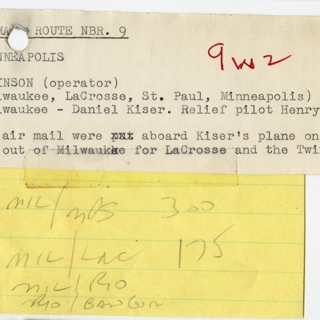 MAIL ROUTE NBR. 9
NNEAPOLIS
9W2
INSON (operator)
lwaukee, LaCrosse, St. Paul, Minneapolis)
lwaukee - Daniel Kiser. Relief pilot Henry
air mail were xxx aboard Kiser's plane on
out of Milwaukee for LaCrosse and the Twi
MIL/MPS 300
MIL/LAC 175
MIL/RIO
RIO/BANGOR